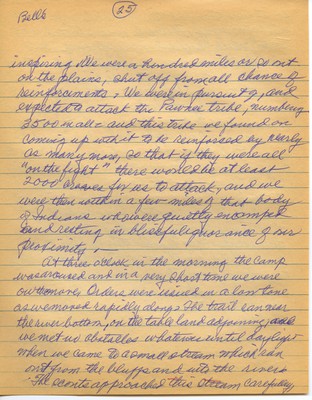 Bell's
25
inspiring. We were a hundred miles or so out
on the plains, shut off from all chance of
reinforcements. We were in pursuit of, and
expected to attack the Pawnee tribe, numbering
3500 in all - and this tribe we found on
coming up with it to be reinforced by nearly
as many more, so that if they were all
"on the fight" there would be at least
2000 braves for us to attack, and we
were then within a few miles of that body
of Indians who were quietly encamped
and resting in blissful ignorance of our
proximity. -
At three o'clock in the morning the camp
was aroused and in a very short time we were
on the move. Orders were issued in a low tone
as we moved rapidly along. The trail ran near
the river bottom, on the table land adjoining, and
we met no obstacles whatever until daylight
when we came to a small stream which ran
out from the bluffs and into the river.
The scouts approached this stream carefully,